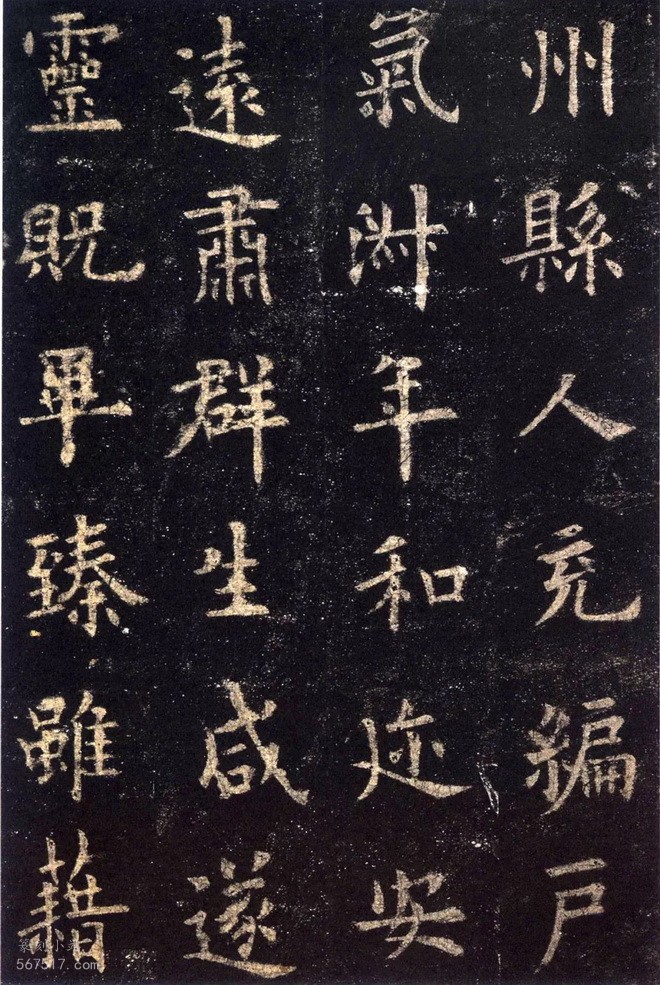 州縣人充編戶
氣淋年和迩安
遠肅群生咸遂
靈貺畢臻雖藉
篆刻小站
567517.com